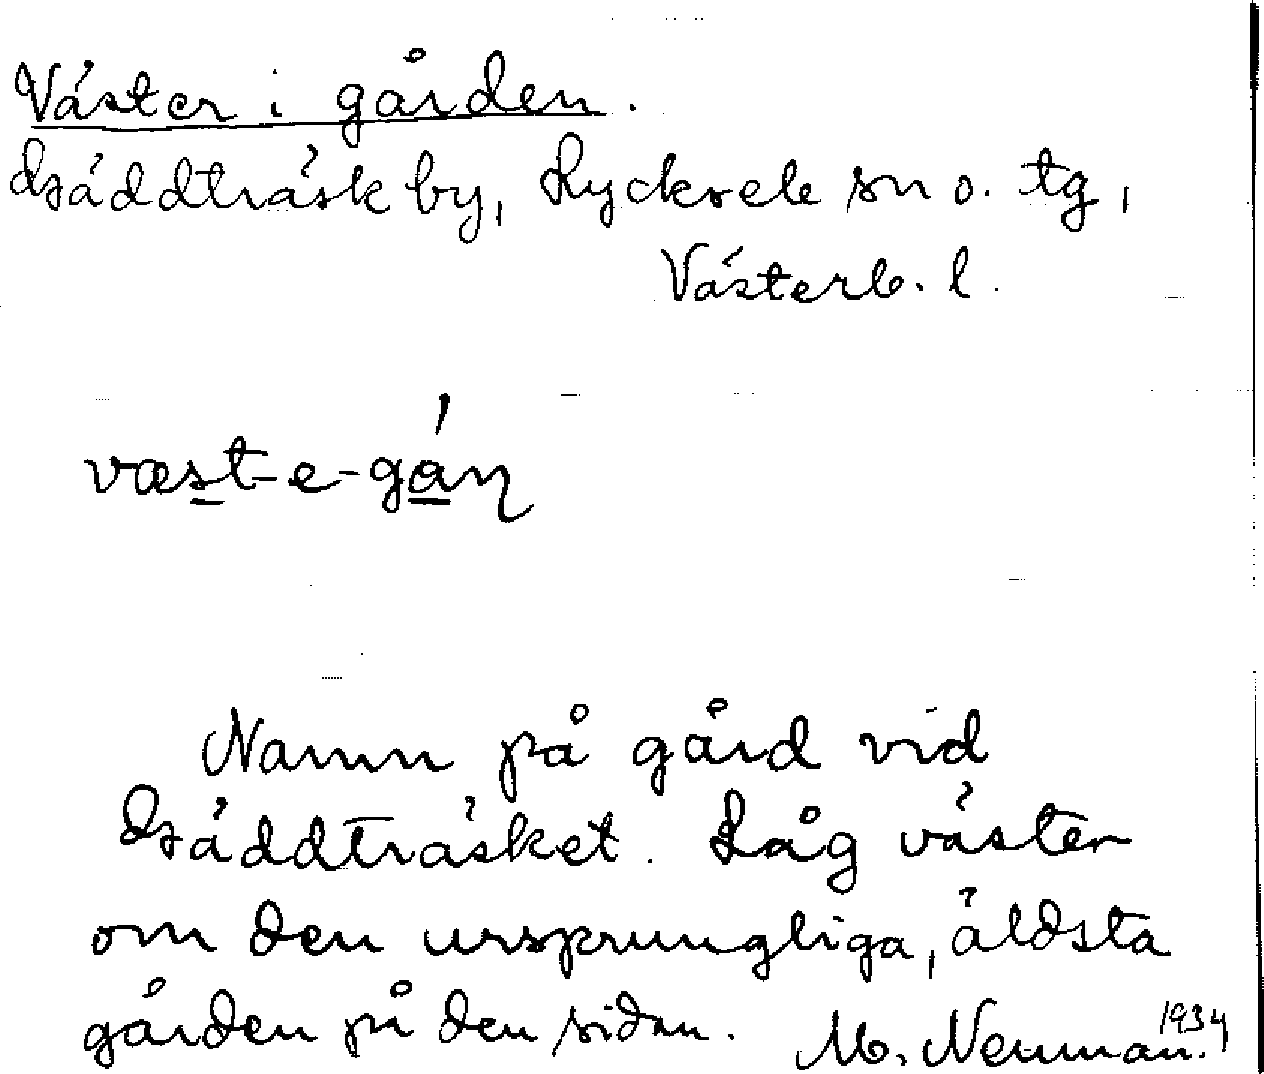 Väster i gården.
Gäddträsk by, Lycksele sn o. tg,
Västerb. l.
væst-e-gá̊ɳ
Namn på gård vid
Gäddträsket. Låg väster
om den ursprungliga, äldsta
gården på den sidan.
M. Neuman. 1934